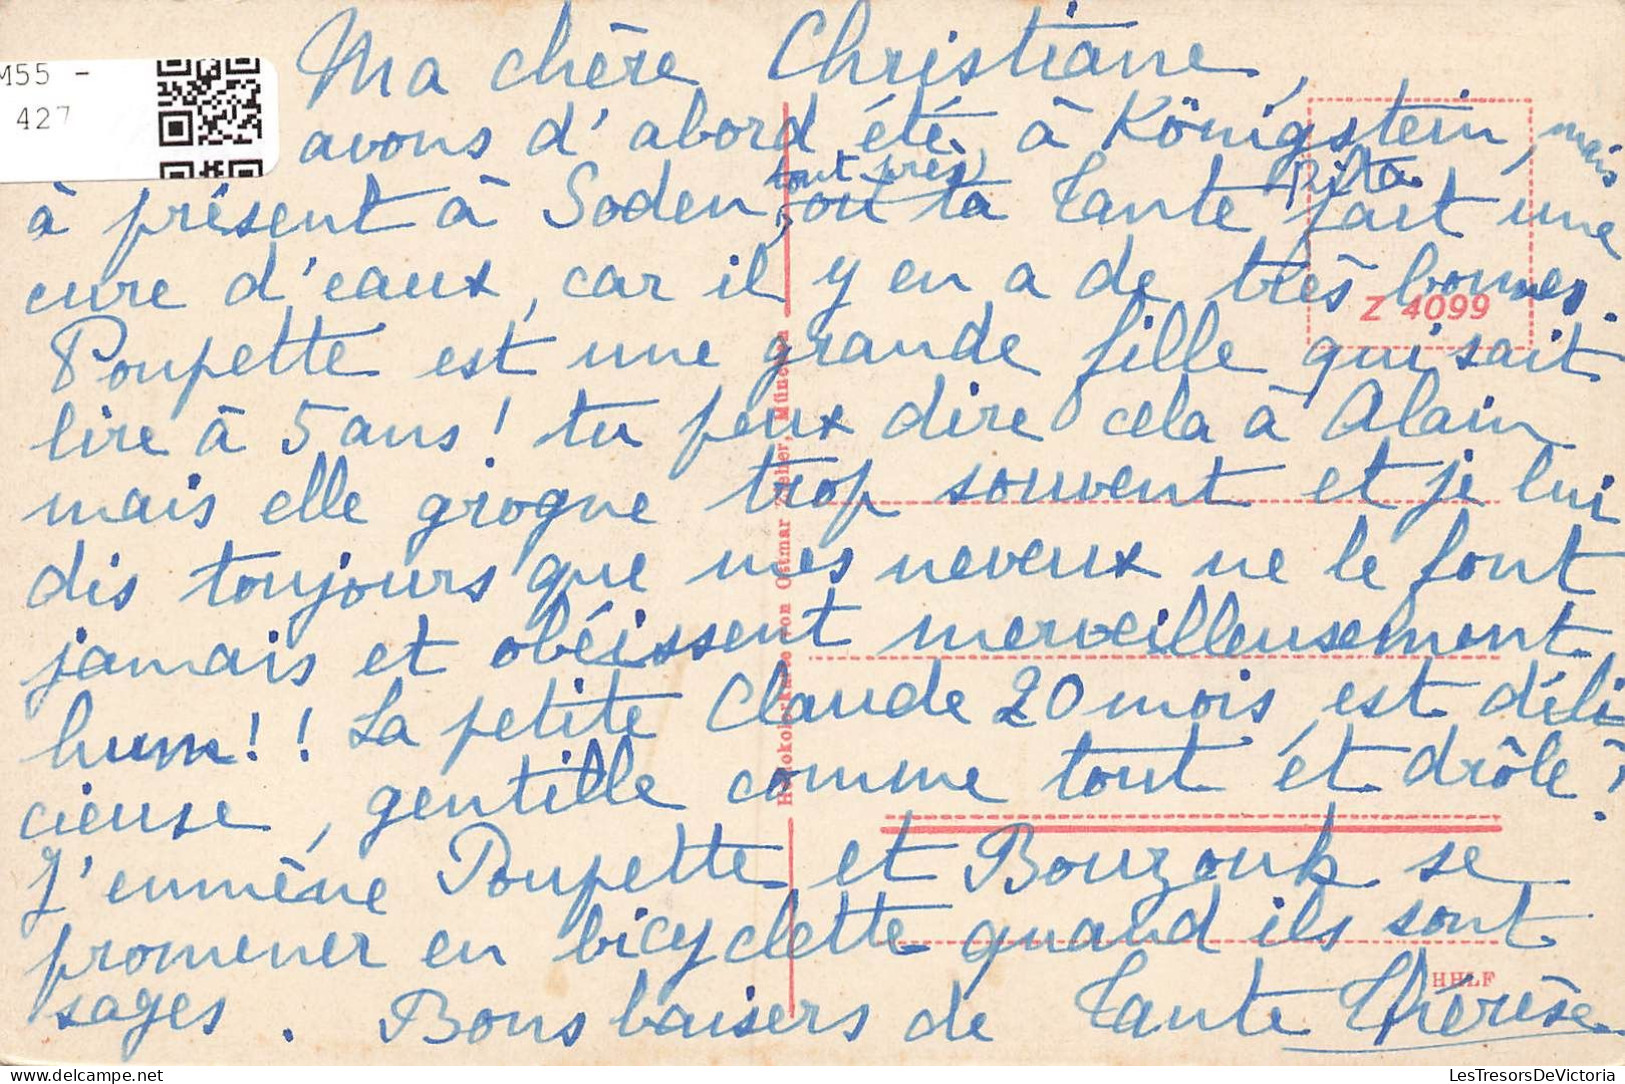 M55 -
427
Ma chère Christiane,
avons d'abord été à Königstein, mais
tout près
Rita
à présent à Soden, où ta Tante fait une
cure d'eaux, car il y en a de très bonnes.
Z 4099
Poupette est une grande fille qui sait
lire à 5 ans! tu peux dire cela à Alain
mais elle grogne trop souvent et je lui
dis toujours que mes neveux ne le font
jamais et obéissent merveilleusement
hum!! La petite Claude 20 mois, est déli
cieuse, gentille comme tout et drôle!
J'emmène Poupette et Bouzouk se
promener en bicyclette quand ils sont
HHLF
sages. Bons baisers de Tante Thérèse
von Ottmar Zieher, München
LesTresorsDeVictoria